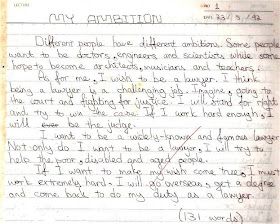 LECTURE
NO. 1
MY AMBITION
DATE 23/3/92
Different people have different ambitions. Some people
want to be doctors, engineers and scientists while some
hope to become architects, musicians and teachers.
As for me, I wish to be a lawyer. I think
being a lawyer is a challenging job. Imagine, going to
the court and fighting for justice. I will stand for right
and try to win the case. If I work hard enough, I
will even be the judge.
I want to be a widely-known and famous lawyer.
Not only do I want to be a lawyer, I will try to
help the poor, disabled and aged people.
If I want to make my wish come true, I must
work extremely hard. I will go overseas, get a degree
and come back to do my duty as a lawyer.
(131 words)